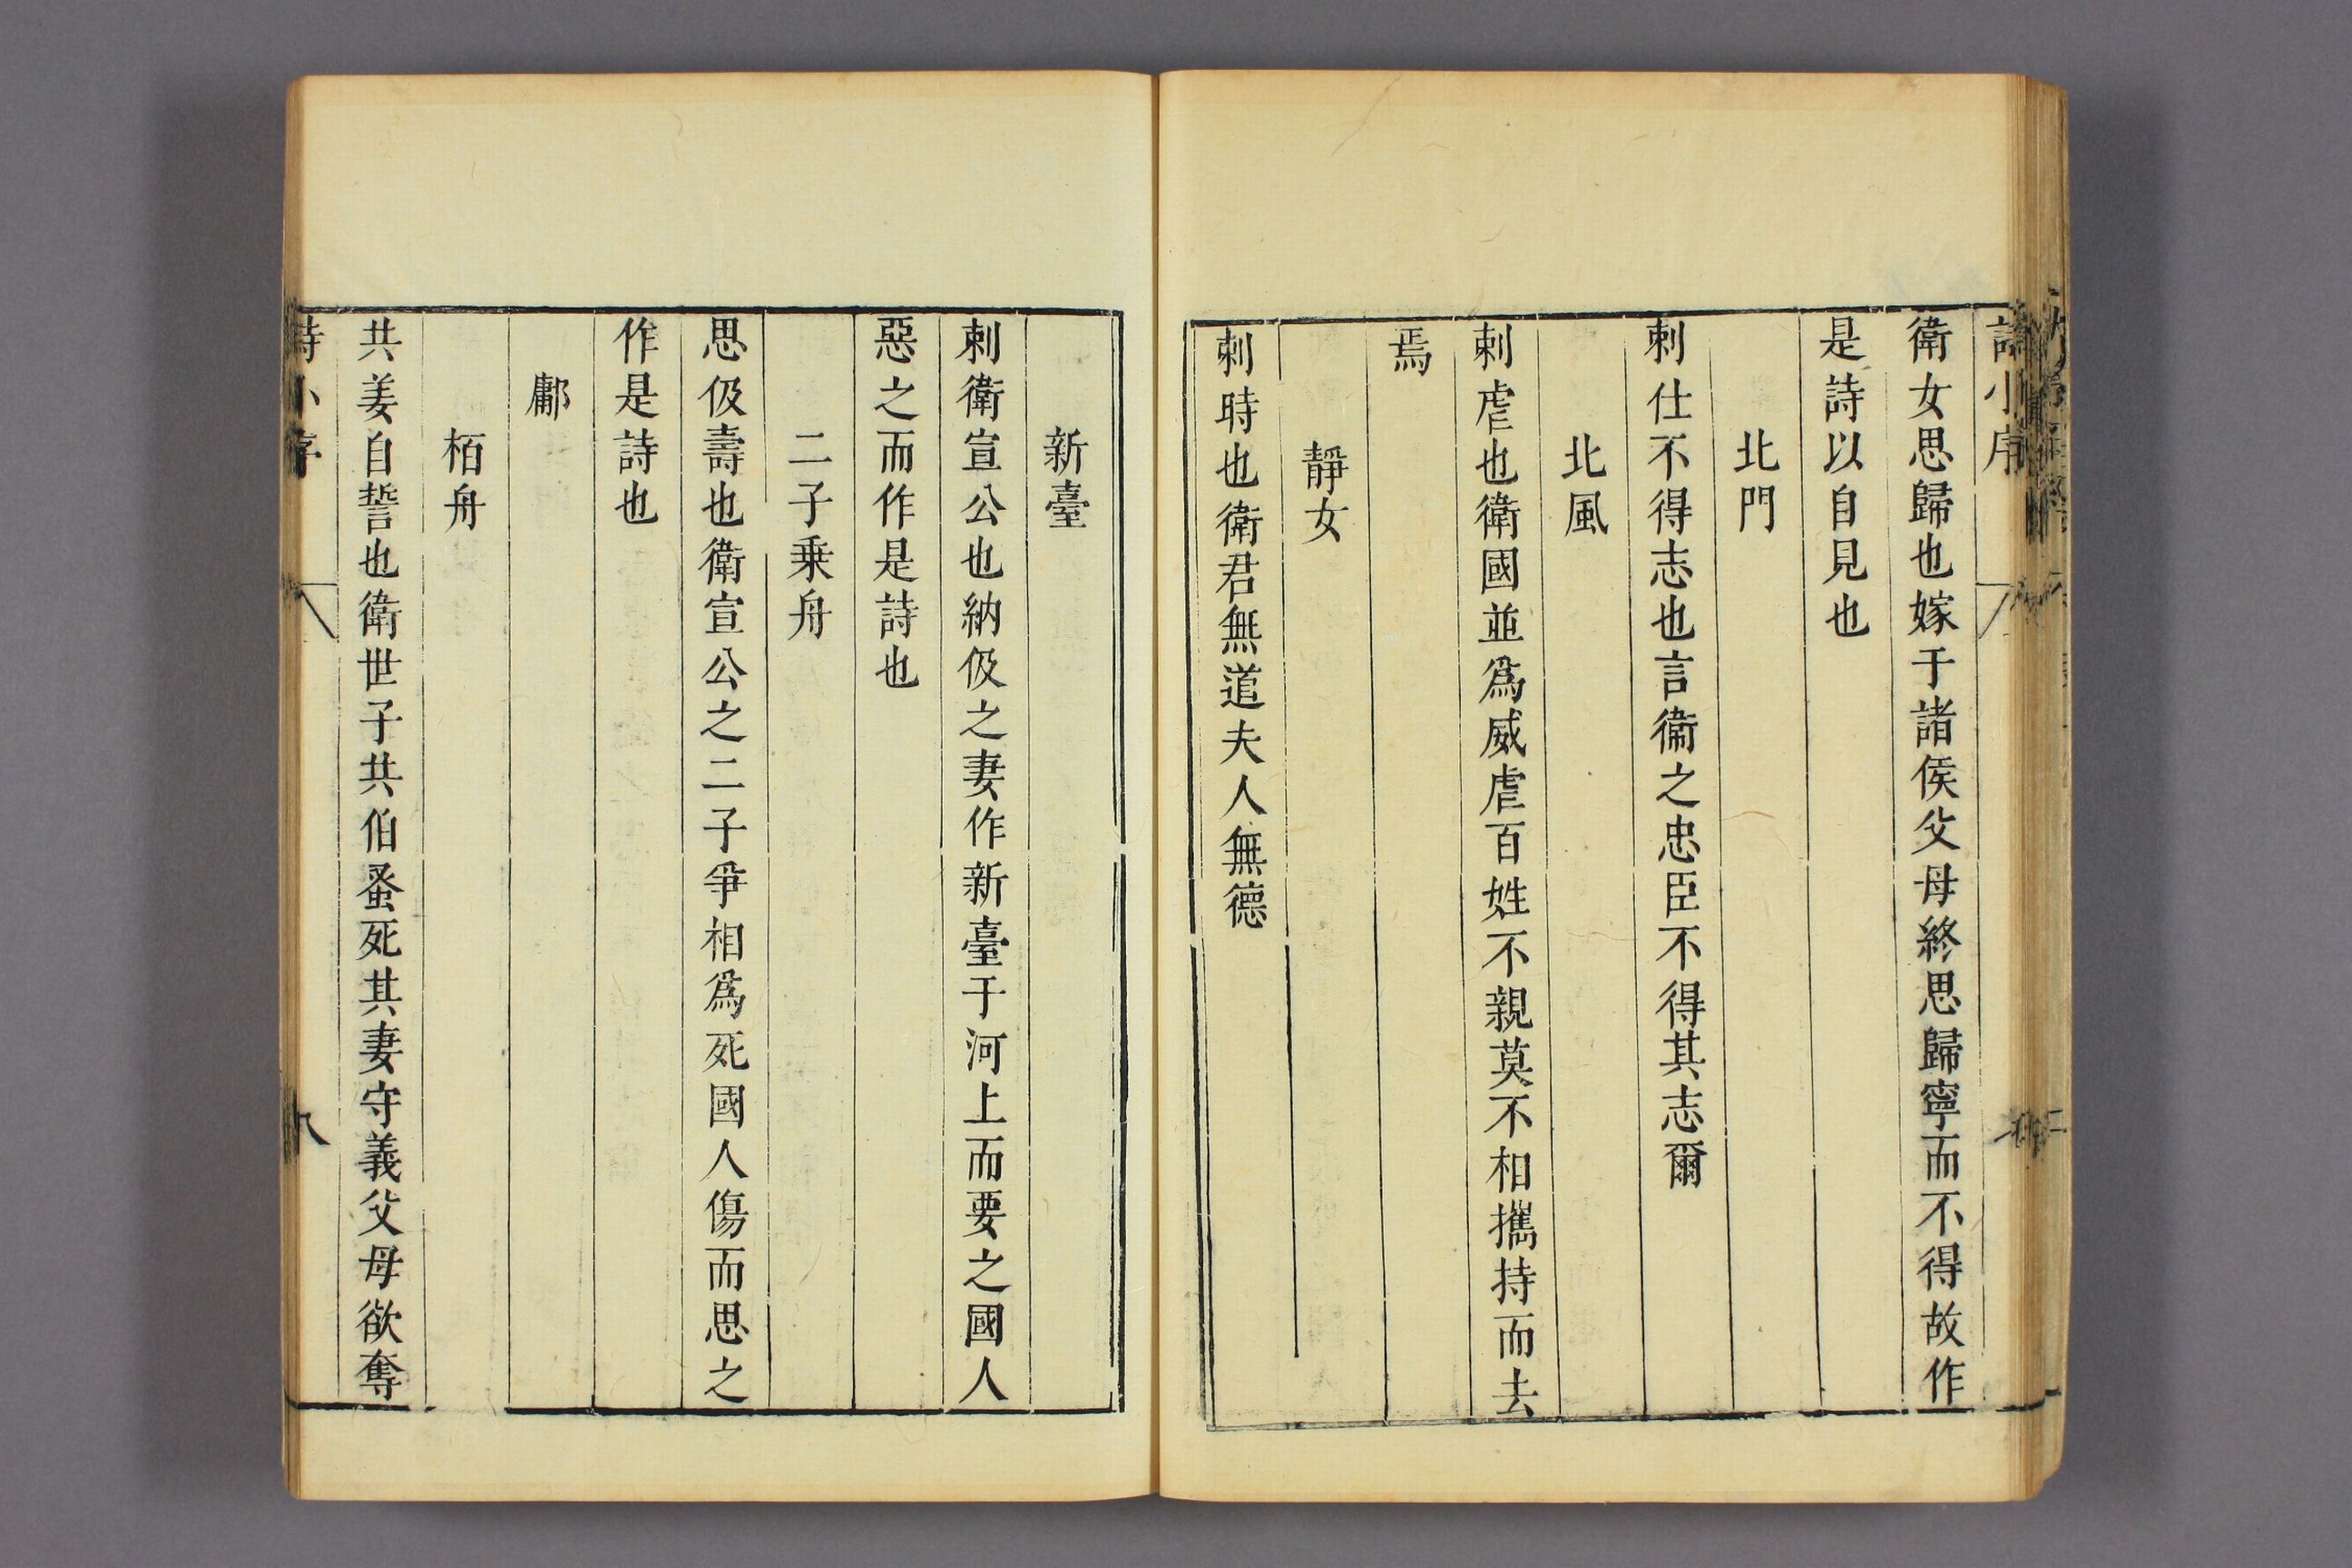 詩小序
衛女思歸也嫁于諸侯父母終思歸寧而不得故作
是詩以自見也
北門
刺仕不得志也言衛之忠臣不得其志爾
北風
刺虐也衛國並爲威虐百姓不親莫不相攜持而去
焉
靜女
刺時也衛君無道夫人無德
新臺
刺衛宣公也納伋之妻作新臺于河上而要之國人
惡之而作是詩也
二子乗舟
思伋壽也衛宣公之二子爭相爲死國人傷而思之
作是詩也
鄘
栢舟
共姜自誓也衛世子共伯蚤死其妻守義父母欲奪
詩小序